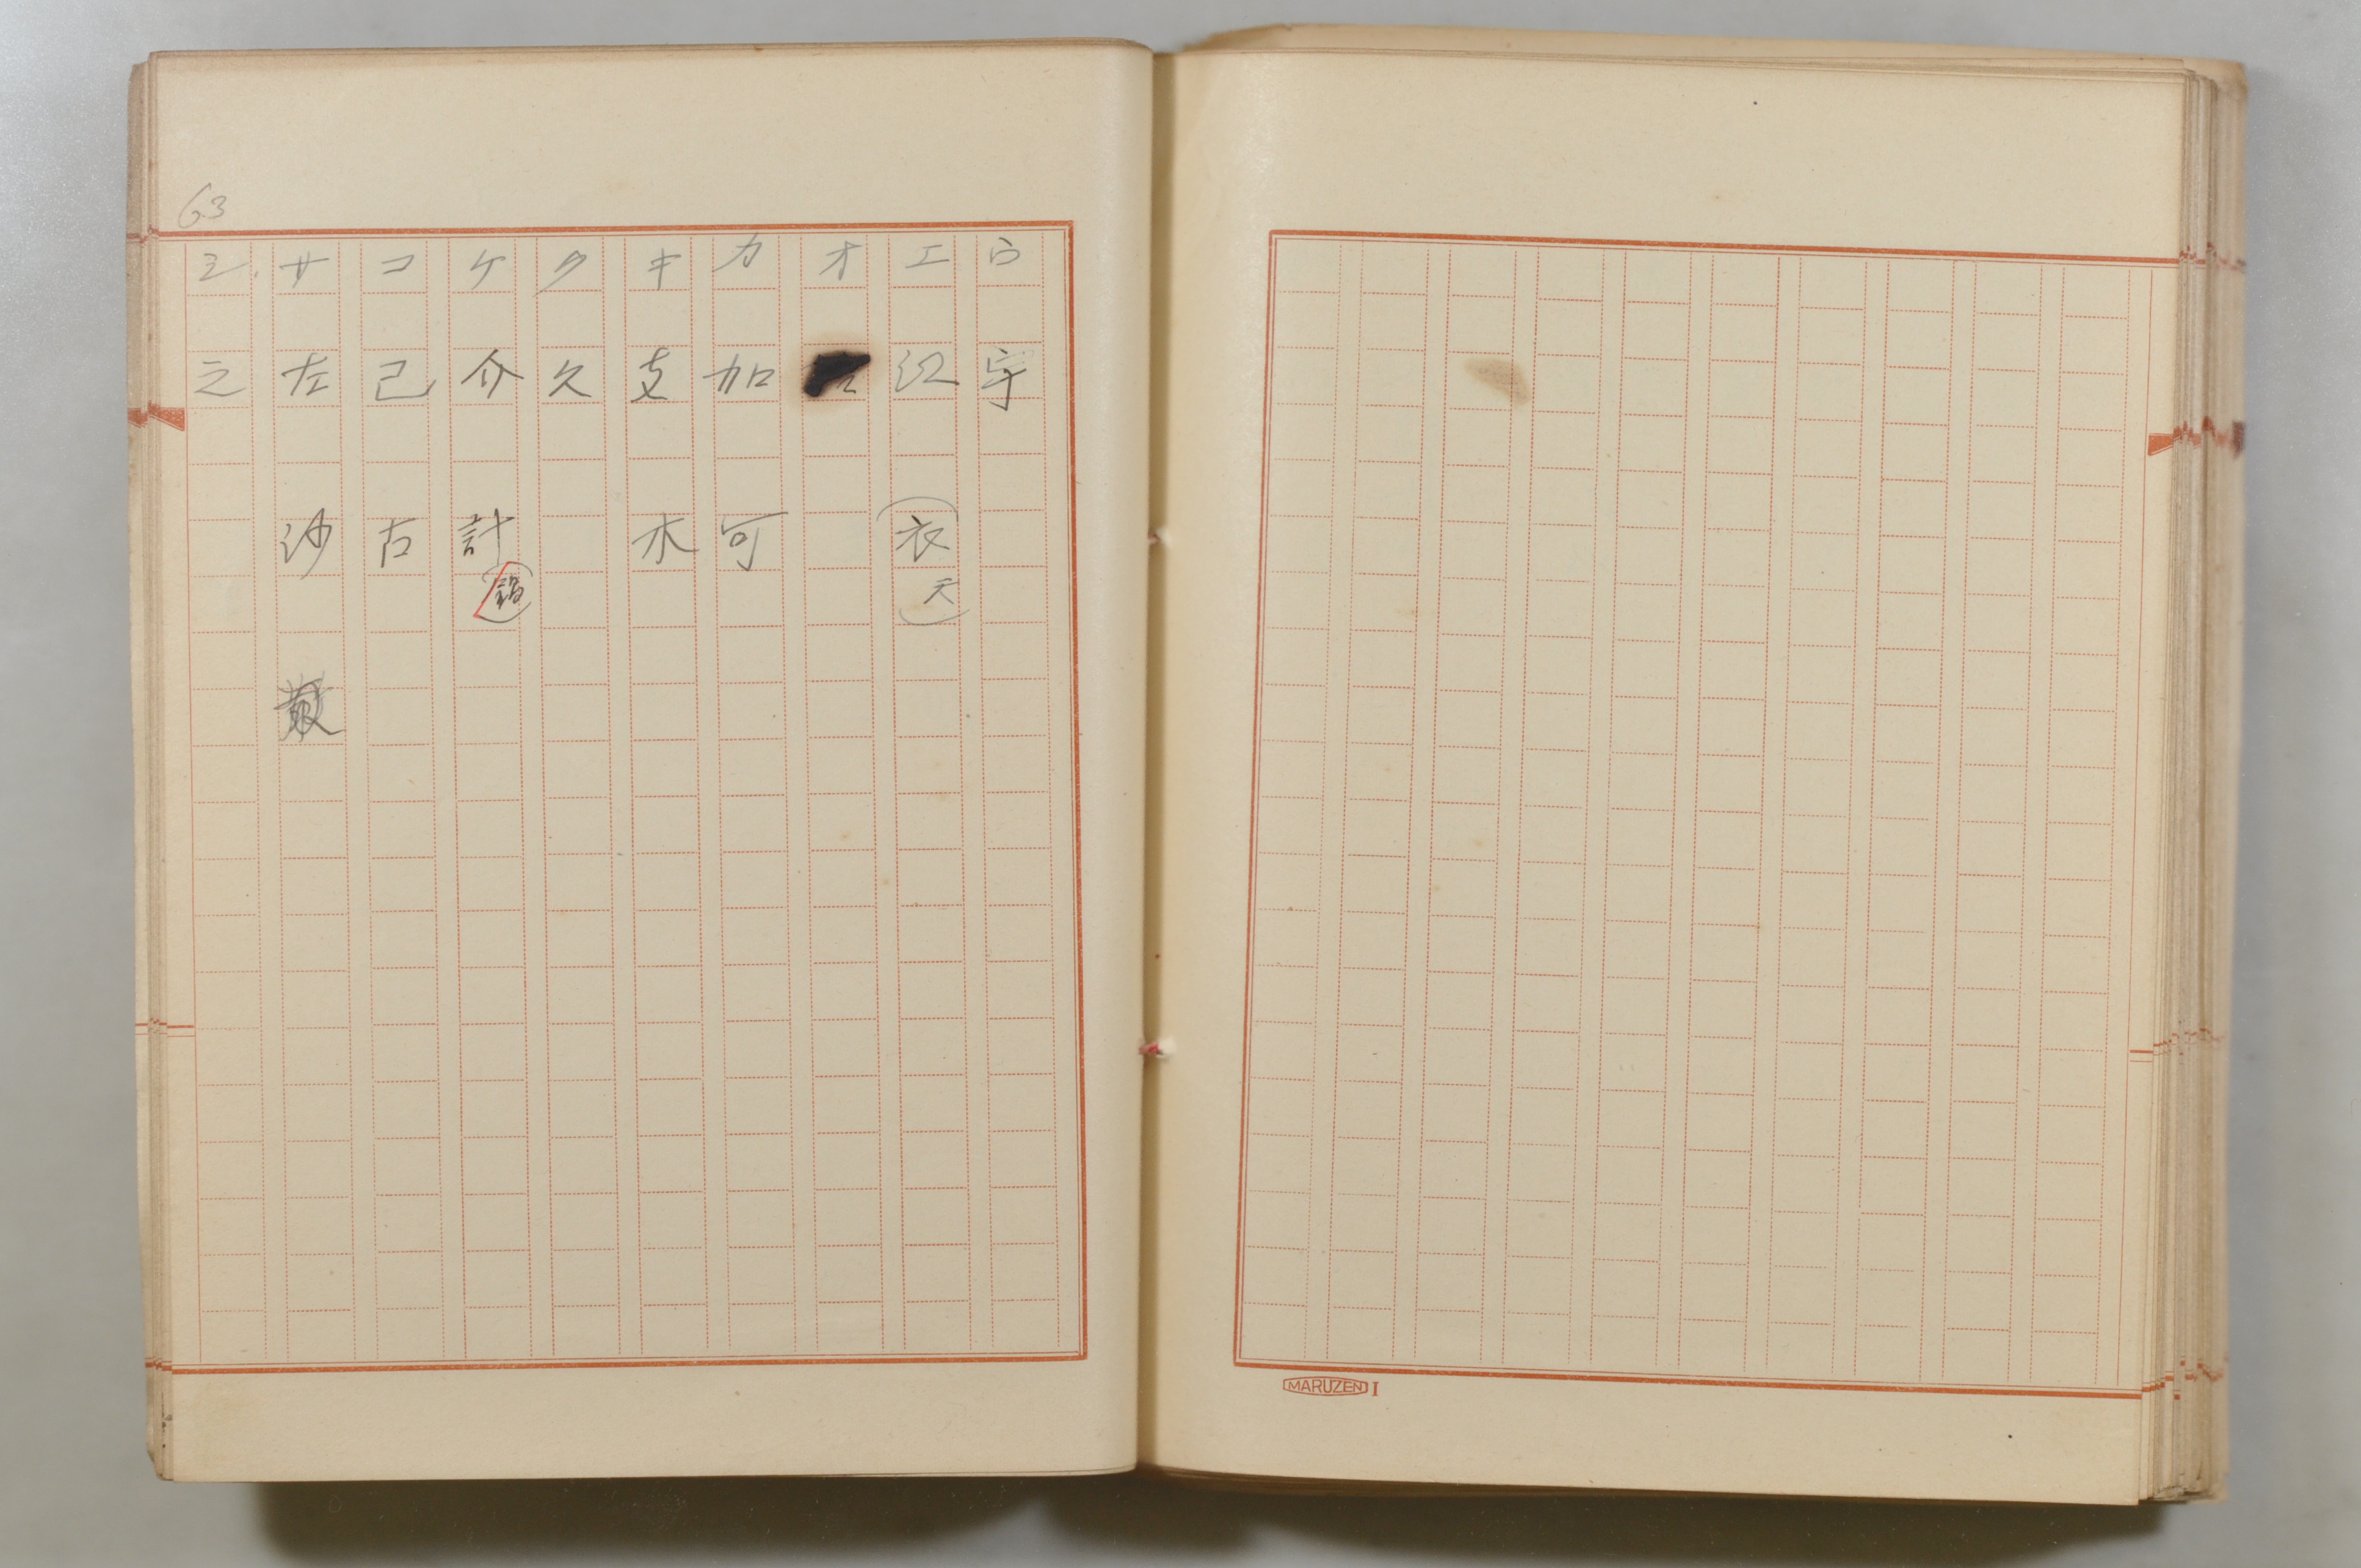 63
ウ 宇
エ 江 (衣 天)
オ
カ 加 可
キ 支 木
ク 久
ケ 介 計
コ 己 古
サ 左 沙
シ 之
MARUZEN I